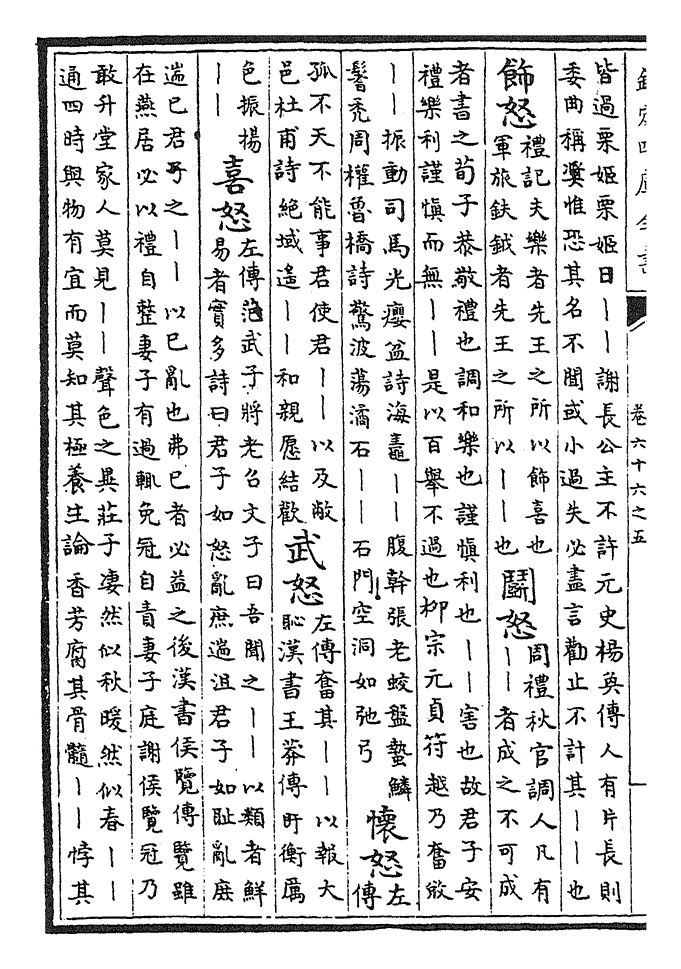 欽定四庫全書
卷六十六之五
皆過栗姬栗姬日丨丨謝長公主不許元史楊奐傳人有片長則
委曲稱奬惟恐其名不聞或小過失必盡言勸止不計其丨丨也
飾怒
禮記夫樂者先王之所以飾喜也
軍旅鈇鉞者先王之所以丨丨也
鬭怒
周禮秋官調人凡有
丨丨者成之不可成
者書之荀子恭敬禮也調和樂也謹慎利也丨丨害也故君子安
禮樂利謹慎而無丨丨是以百舉不過也柳宗元貞符越乃奮敓
丨丨振動司馬光癭盆詩海蠹丨丨腹幹張老蛟盤蟄鱗
鬐禿周權魯橋詩驚波蕩潏石丨丨石門空洞如弛弓
懷怒
左
傳
孤不天不能事君使君丨丨以及敝
邑杜甫詩絶域遙丨丨和親愿結歡
武怒
左傳奮其丨丨以報大
恥漢書王莽傳盱衡厲
色振揚
丨丨
喜怒
左傳范武子將老召文子曰吾聞之丨丨以類者鮮
易者實多詩曰君子如怒亂庶遄沮君子如耻亂庶
遄已君子之丨丨以已亂也弗已者必益之後漢書侯覽傳覽雖
在燕居必以禮自整妻子有過輒免冠自責妻子庭謝侯覽冠乃
敢升堂家人莫見丨丨聲色之異莊子凄然似秋暖然似春丨丨
通四時與物有宜而莫知其極養生論香芳腐其骨髓丨丨悖其